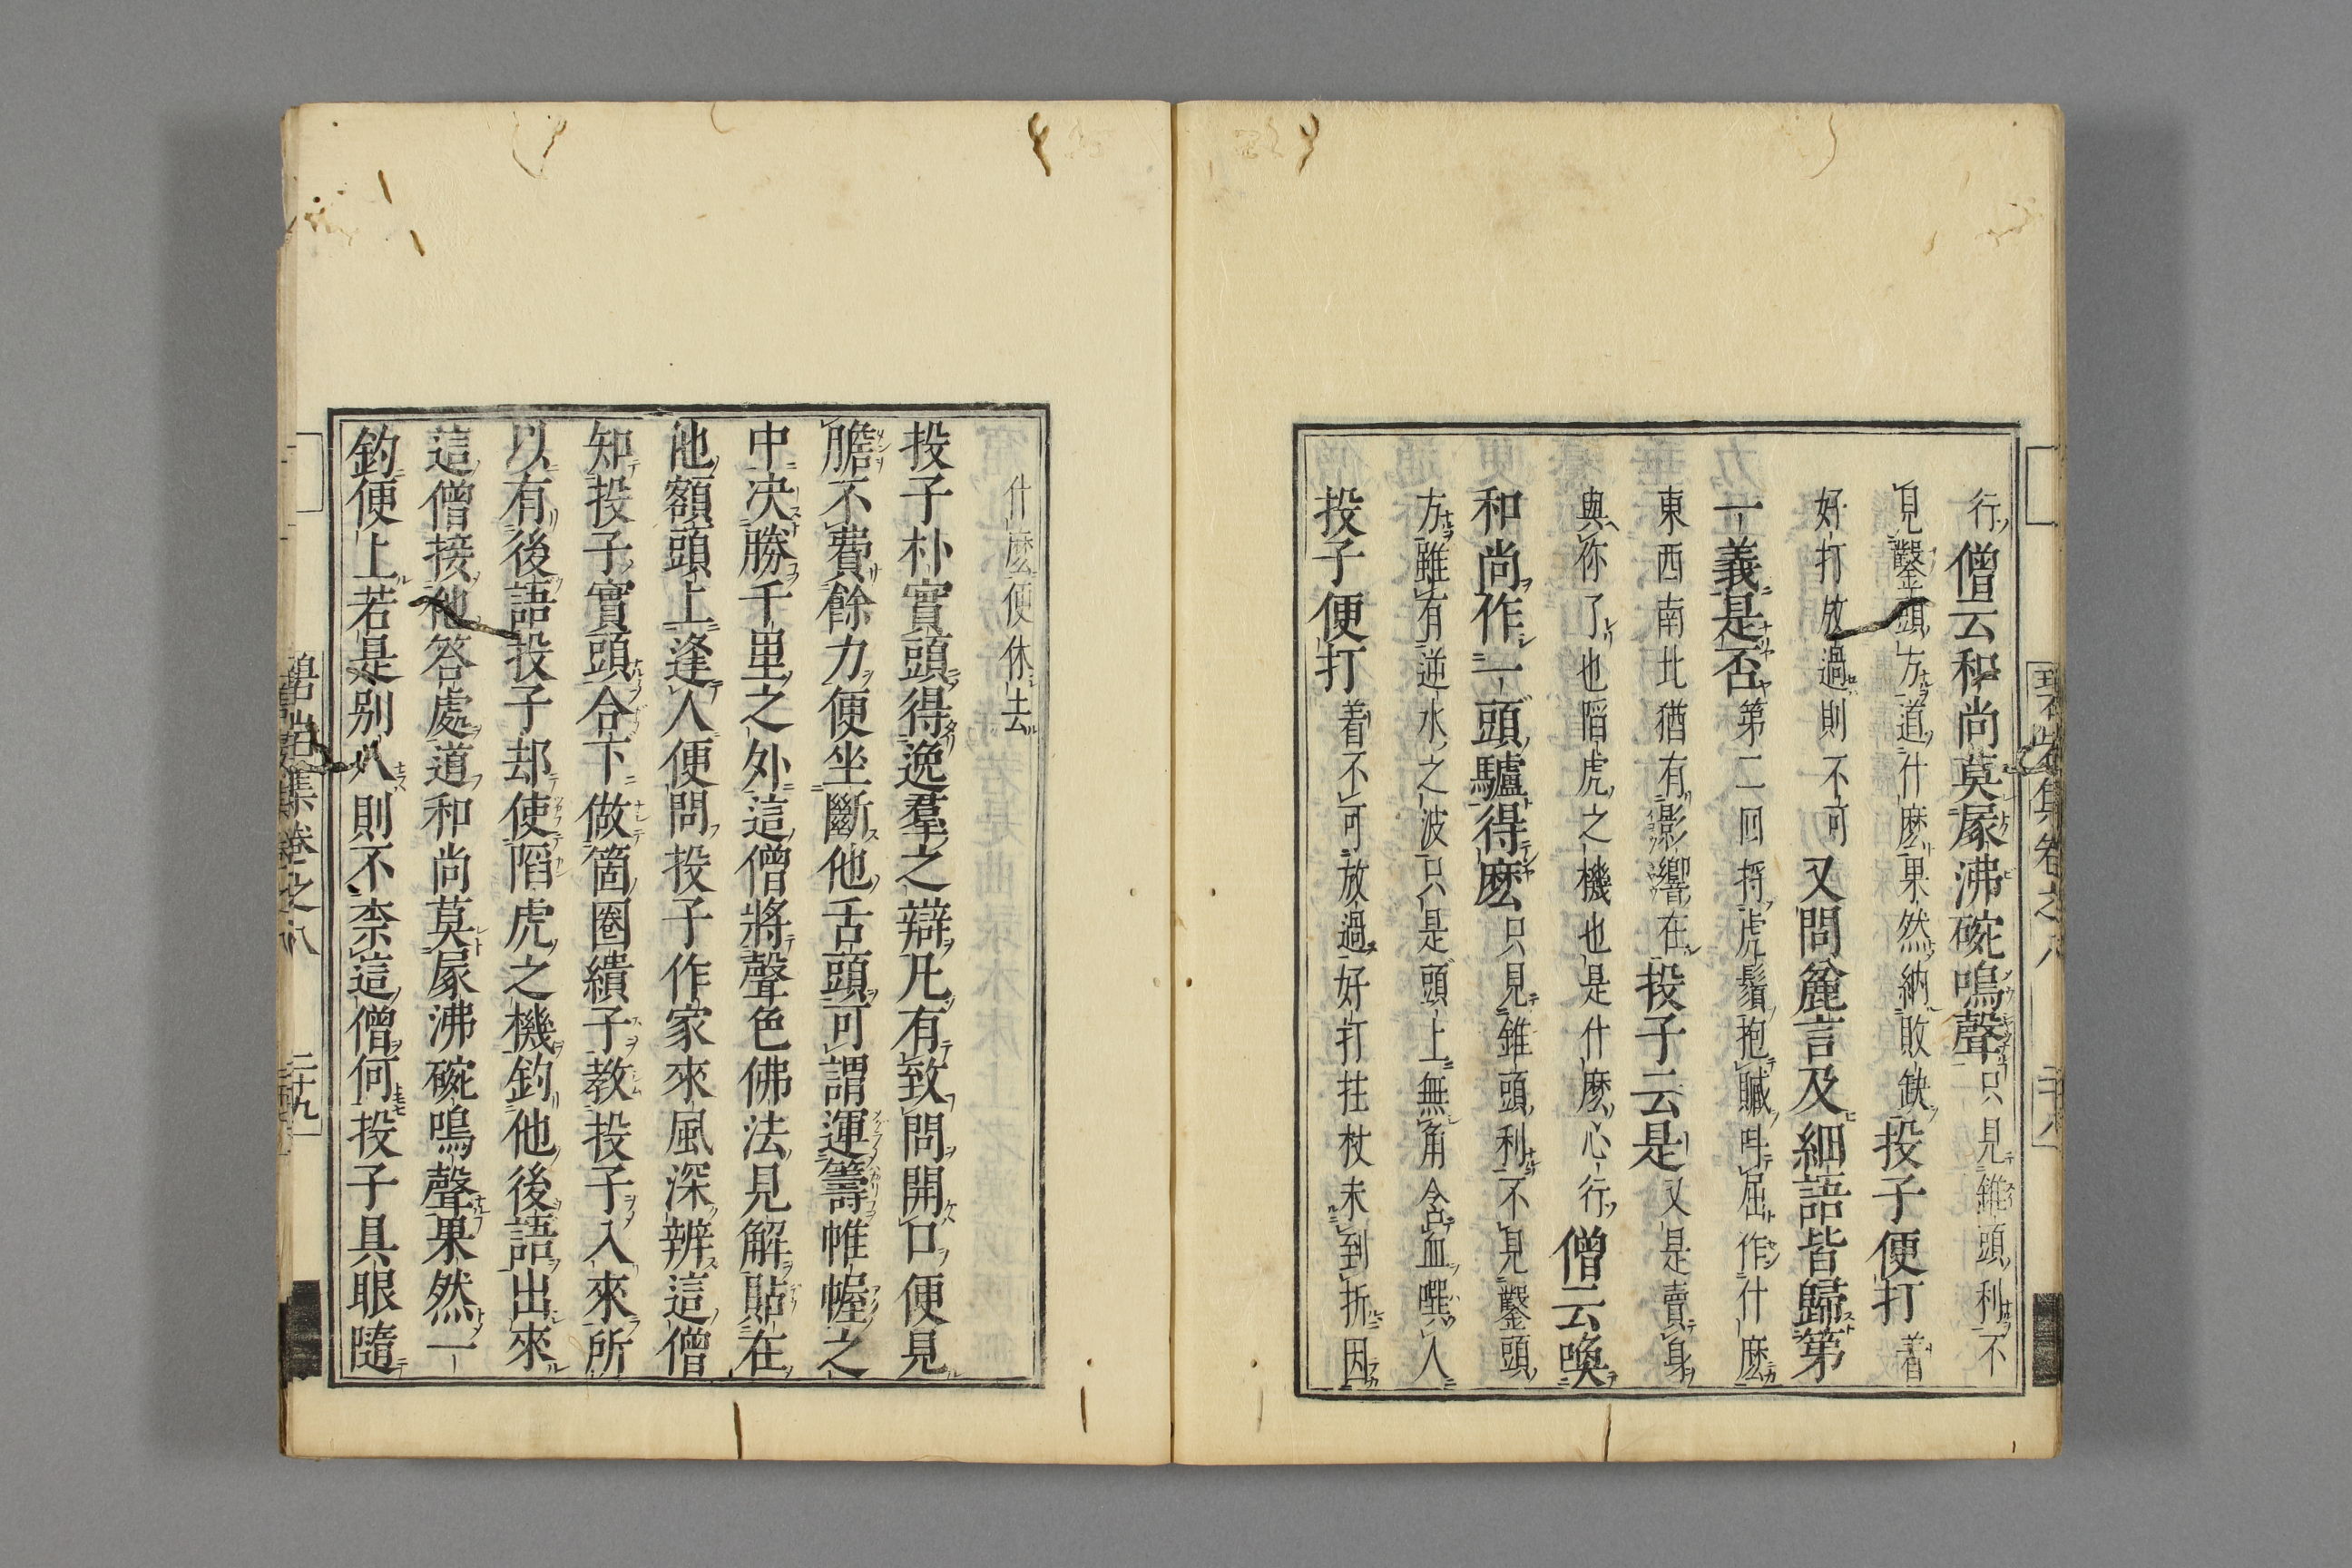 行僧云和尚莫𡱰沸碗鳴聲只見錐頭利不
見鑿頭方道什麽果然納敗缺投子便打着
好打放過則不可又問麄言及細語皆歸第
一義是否第二回捋虎鬚抱贓叫屈作什麽
東西南北猶有影響在投子云是又是賣身
與你了也䧟虎之機也是什麽心行僧云喚
和尚作一頭驢得麽只見錐頭利不見鑿頭
方雖有逆水之波只是頭上無角含血噀人
投子便打着不可放過好打拄杖未到折因
什麽便休去
投子朴實頭得逸羣之辯凡有致問開口便見
膽不費餘力便坐斷他舌頭可謂運籌帷幄之
中决勝千里之外這僧將聲色佛法見解貼在
他額頭上逢人便問投子作家來風深辨這僧
知投子實頭合下做箇圈繢子教投子入來所
以有後語投子却使䧟虎之機釣他後語出來
這僧接他答處道和尚莫𡱰沸碗鳴聲果然一
釣便上若是别人則不柰這僧何投子具眼隨
碧岩集卷之八 二十九